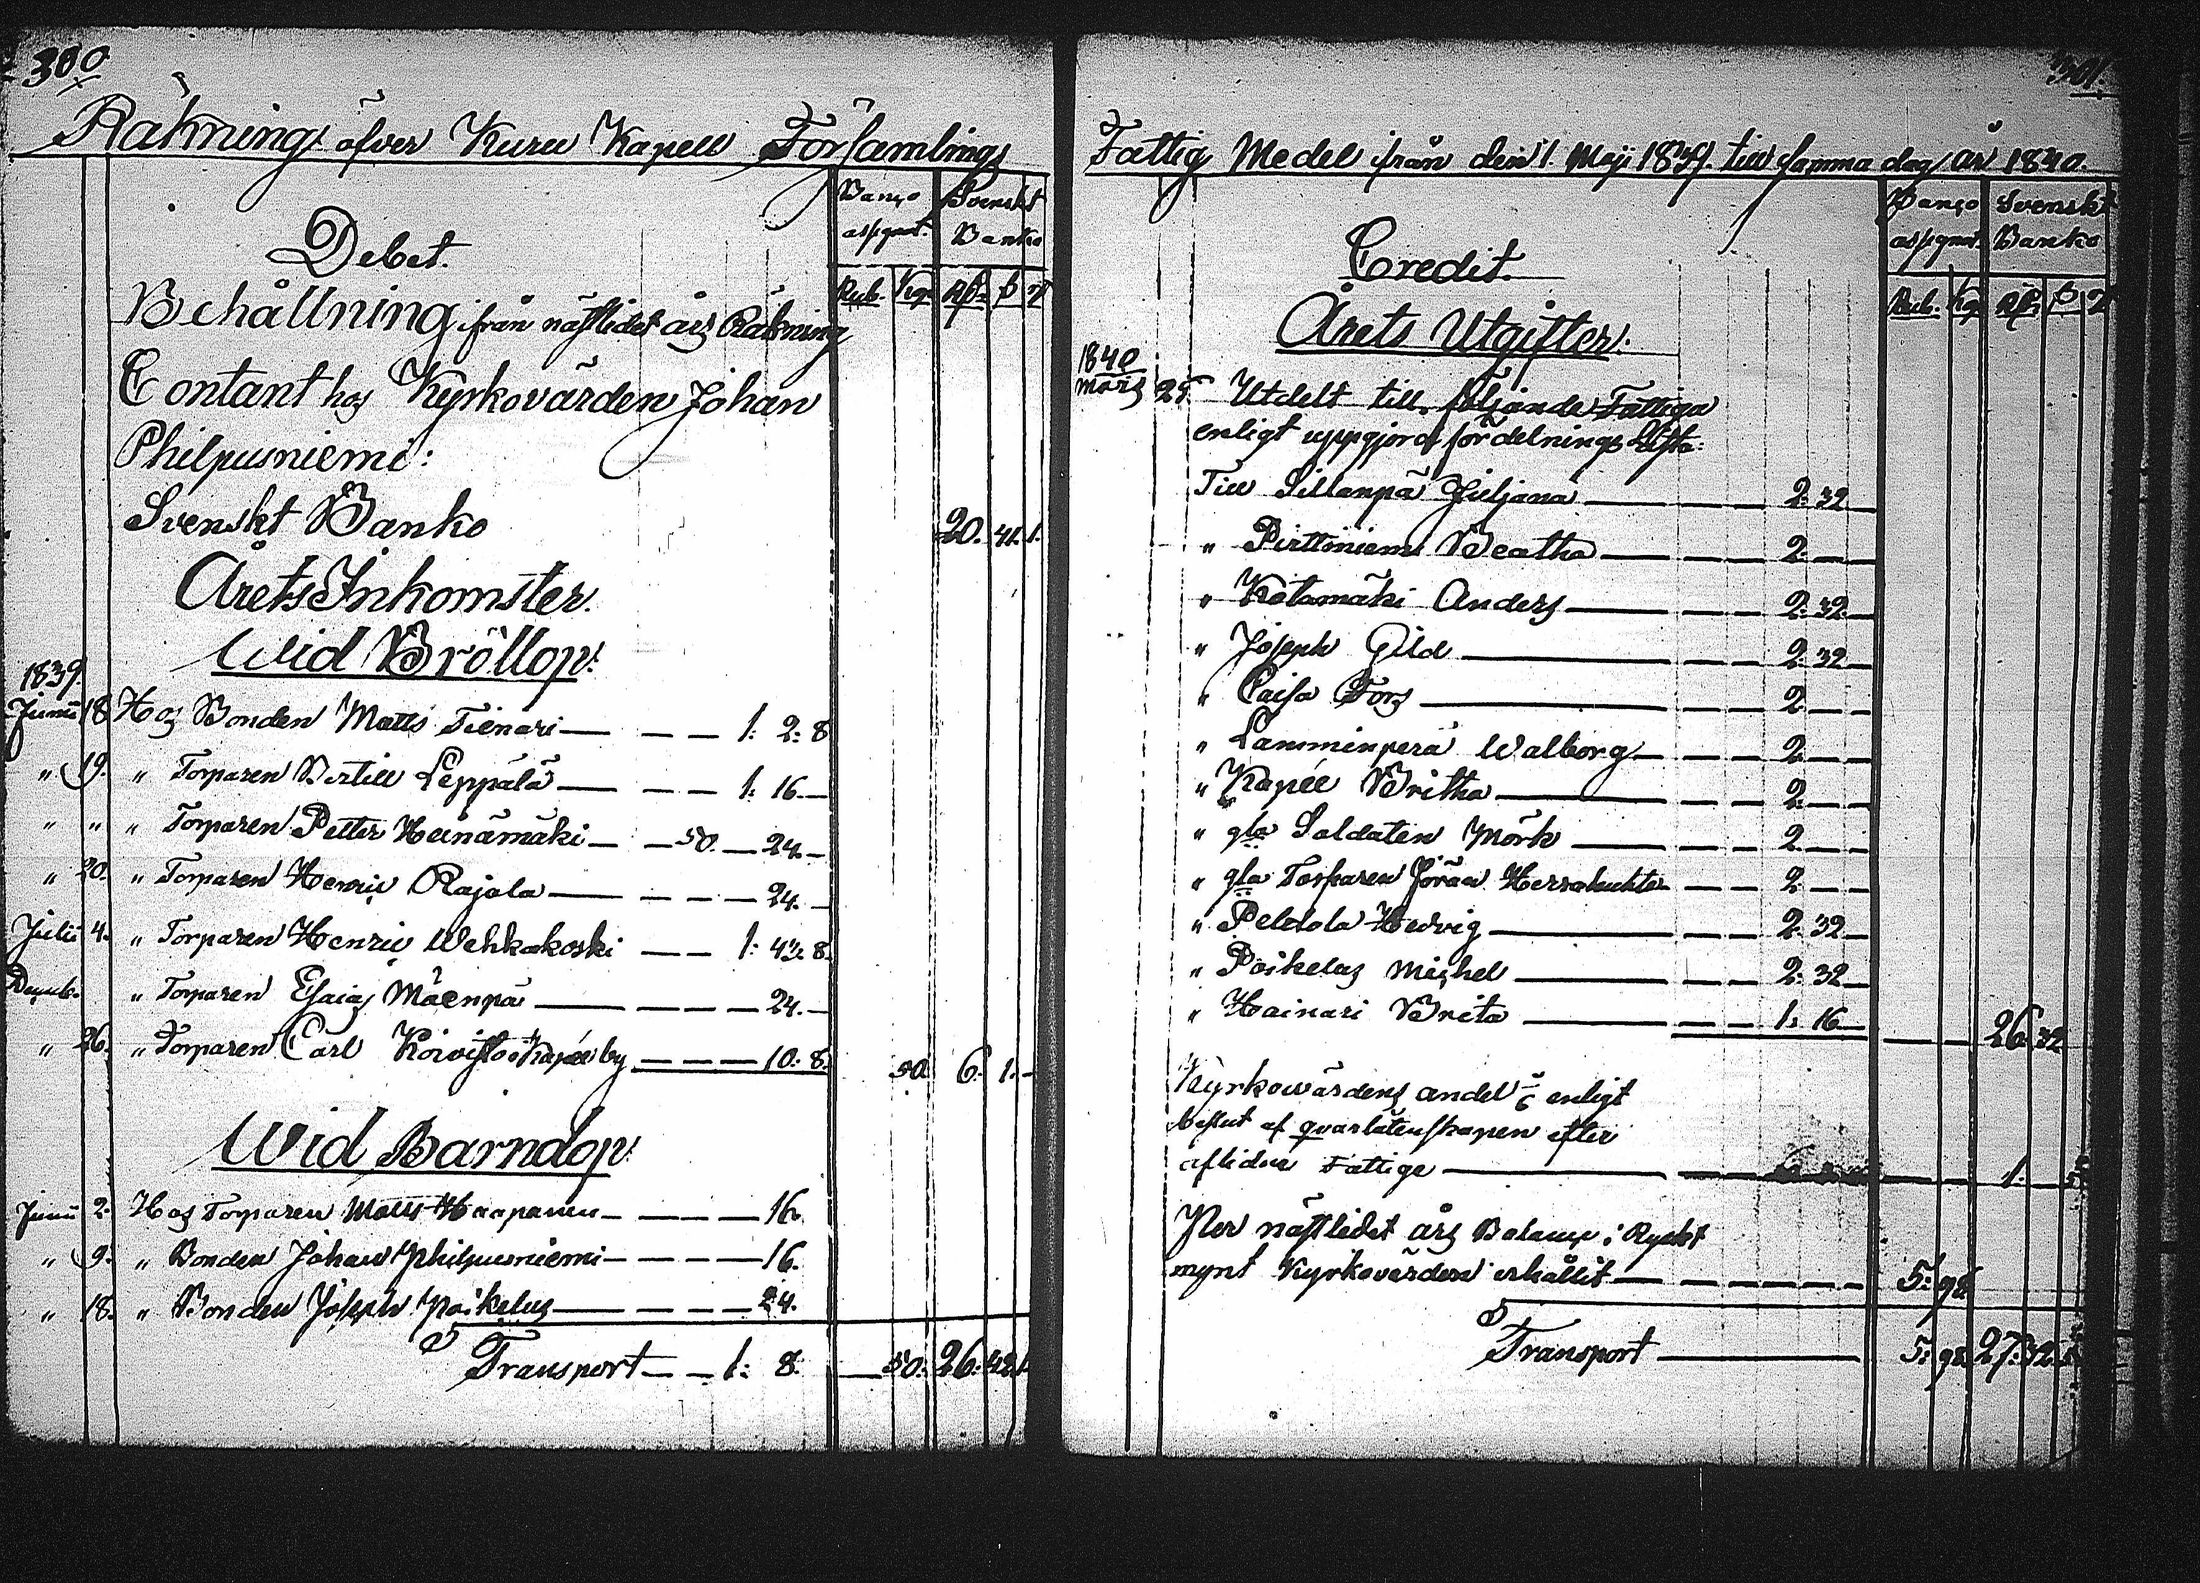 300
Räkning öfver Kuru Kapell Församlings
Banco Svenskt
assignat. Banko
Debet.
Rub. Kop. Rß. ß r
Behållning ifrån nästledet års Räkning
Contant hos Kyrkovärden Johan
Philpusniemi:
Svenskt Banko 20. 41. 1.
Årets Inkomster.
Wid Bröllop:
1839.
Junii 18 Hos Bonden Matts Tienari — — — 1: 2: 8
" 19. " Torparen Bertill Leppälä — — — 1: 16. —
" " " Torparen Petter Heinämäki — — 50. — 24. —
" 20. " Torparen Henric Rajala — — — — 24. —
Julii 4. " Torparen Henric Wehkakoski — — — 1: 42: 8.
Decemb. " Torparen Esaias Mäenpä — — — — 24. —
" 26. " Torparen Carl Koivisto Kapeeby — — — 10: 8. 50. 6. 1. —
Wid Barndop:
Junii 2. Hos Torparen Matts Haapanen — — — — 16.
" 9. " Bonden Johan Philpusniemi — — — — 16.
" 18. " Bonden Joseph Poikelus — — — — 24.
Transport — — 1: 8. — 50. 26. 42. 1.
301.
Fattig Medel ifrån den 1. Maji 1839. till samma dag år 1840.
Banco Svenskt
assignat. Banko
Credit.
Rub. Kop. Rß. ß r
Årets Utgifter:
1840
Mars 25 Utdelt till följande Fattiga
enligt uppgjord fördelnings Lista:
Till Sillanpä Juljana — 2: 32
" Pirttiniemi Beatha — — — 2. — —
" Katamäki Anders — — — 2. 32. —
" Joseph Gild — — — 2. 32 —
" Caisa Fors — — — 2. — —
" Lamminperä Walborg — — — 2. — —
" Kapee Britha — — — 2. — —
" gla Soldaten Mörk — — — 2. — —
" gla Torparen Jöran Herrakuhte — — — 2. — —
" Peltola Hedvig — — — 2. 32 —
" Poikelus Michel — — — 2. 32 —
" Hainari Brita — — — 1. 16 — — — 26. 32
Kyrkovärdens andel enligt
beslut af qvarlåtenskapen efter
aflidne Fattige — 1.
Per nästledet års Balance i Ryskt
mynt Kyrkovärden erhållit — — — — — 5. 98
Transport — 5. 98. 27. 32.